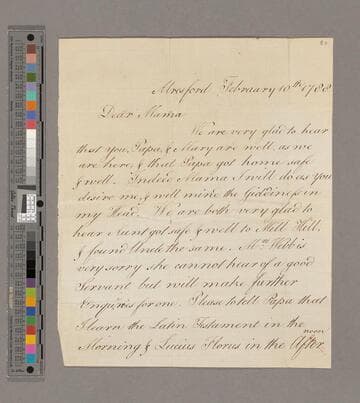 Alresford February 10th 1788
Dear Mama
We are very glad to hear
that you, Papa, & Mary are well, as we
are here, & that Papa got home safe
& well. Indeed Mama I will do as you
desire me, & will mind the Giddiness in
my Head. We are both very glad to
hear Aunt got safe & well to Mill Hill,
& found Uncle the same. Mrs Hibbs is
very sorry she cannot hear of a good
Servant but will make further
Enquiries for one. Please to tell Papa that
I learn the Latin Testament in the
Morning & Lucius Florus in the After
noon